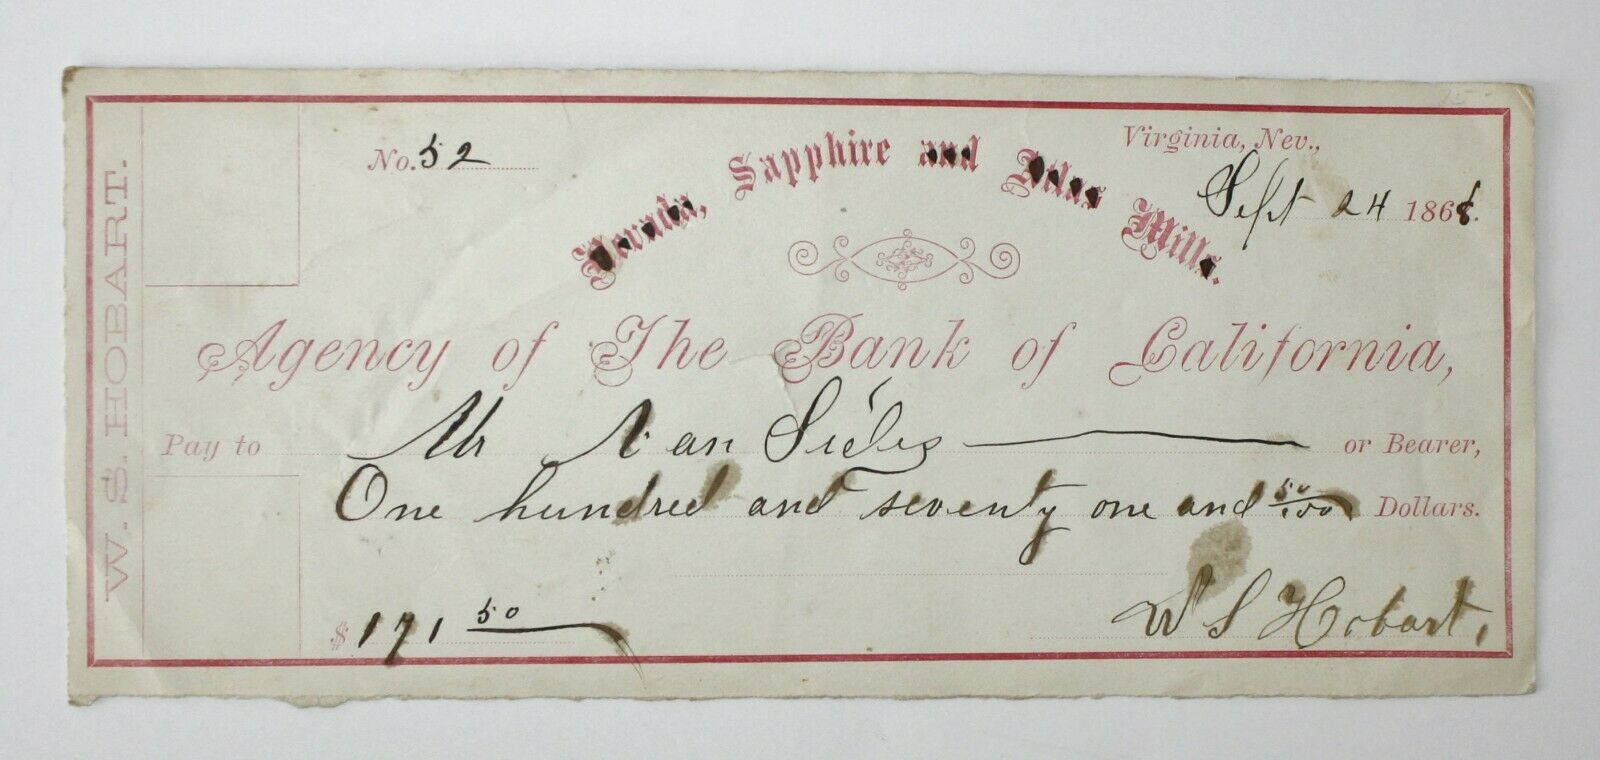 W. S. HOBART.
No. 52
Nevada, Sapphire and Atlas Mills.
Virginia, Nev.,
Sept 24 1868.
Agency of The Bank of California,
Pay to Mr Van Sicles or Bearer,
One hundred and seventy one and 50/100 Dollars.
$ 171 50
W S Hobart.